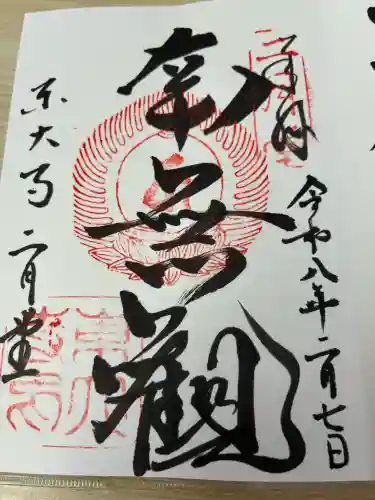 奉拝
令和八年二月七日
南無観
東大寺二月堂